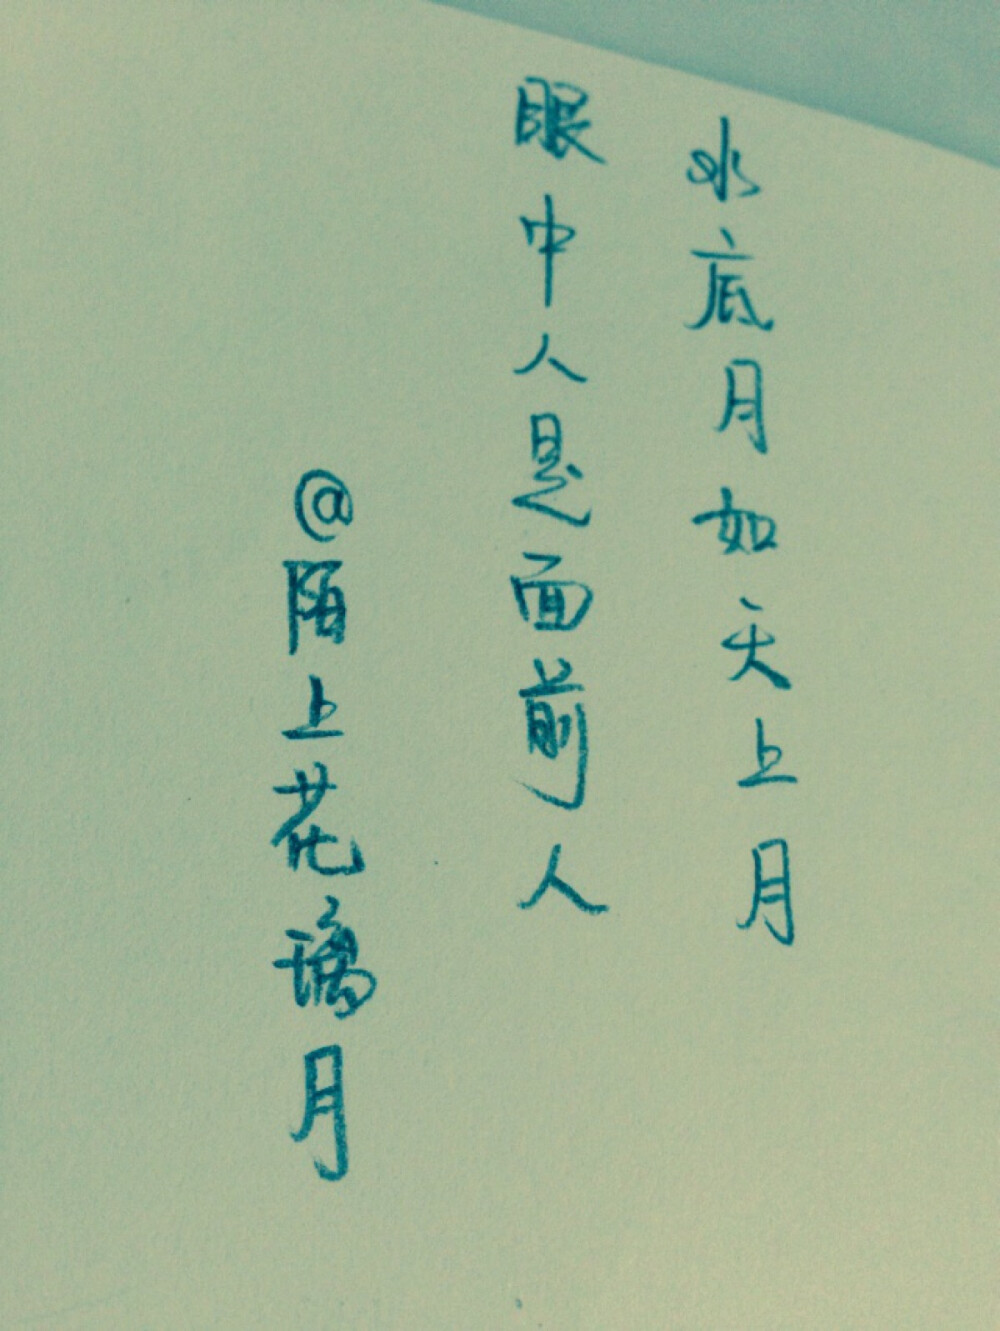 水底月如天上月
眼中人是面前人
@陌上花璃月